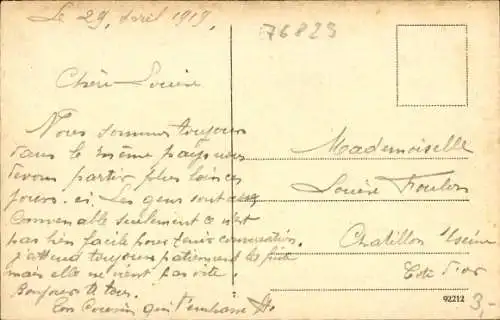 Le 29 Avril 1919.
76823
Chère Louise
Nous sommes toujours
dans le même pays nous
devons partir plus loin ces
jours-ci. Les gens sont assez
convenable seulement ce n'est
pas bien facile pour tenir conversation.
J'attend toujours patiemment la
mais elle ne vient pas vite.
Bonjour à tous.
Ton Cousin qui t'embrasse
Mademoiselle
Louise Foulon
Chatillon s/Seine
Cote d'or
92212
3,-